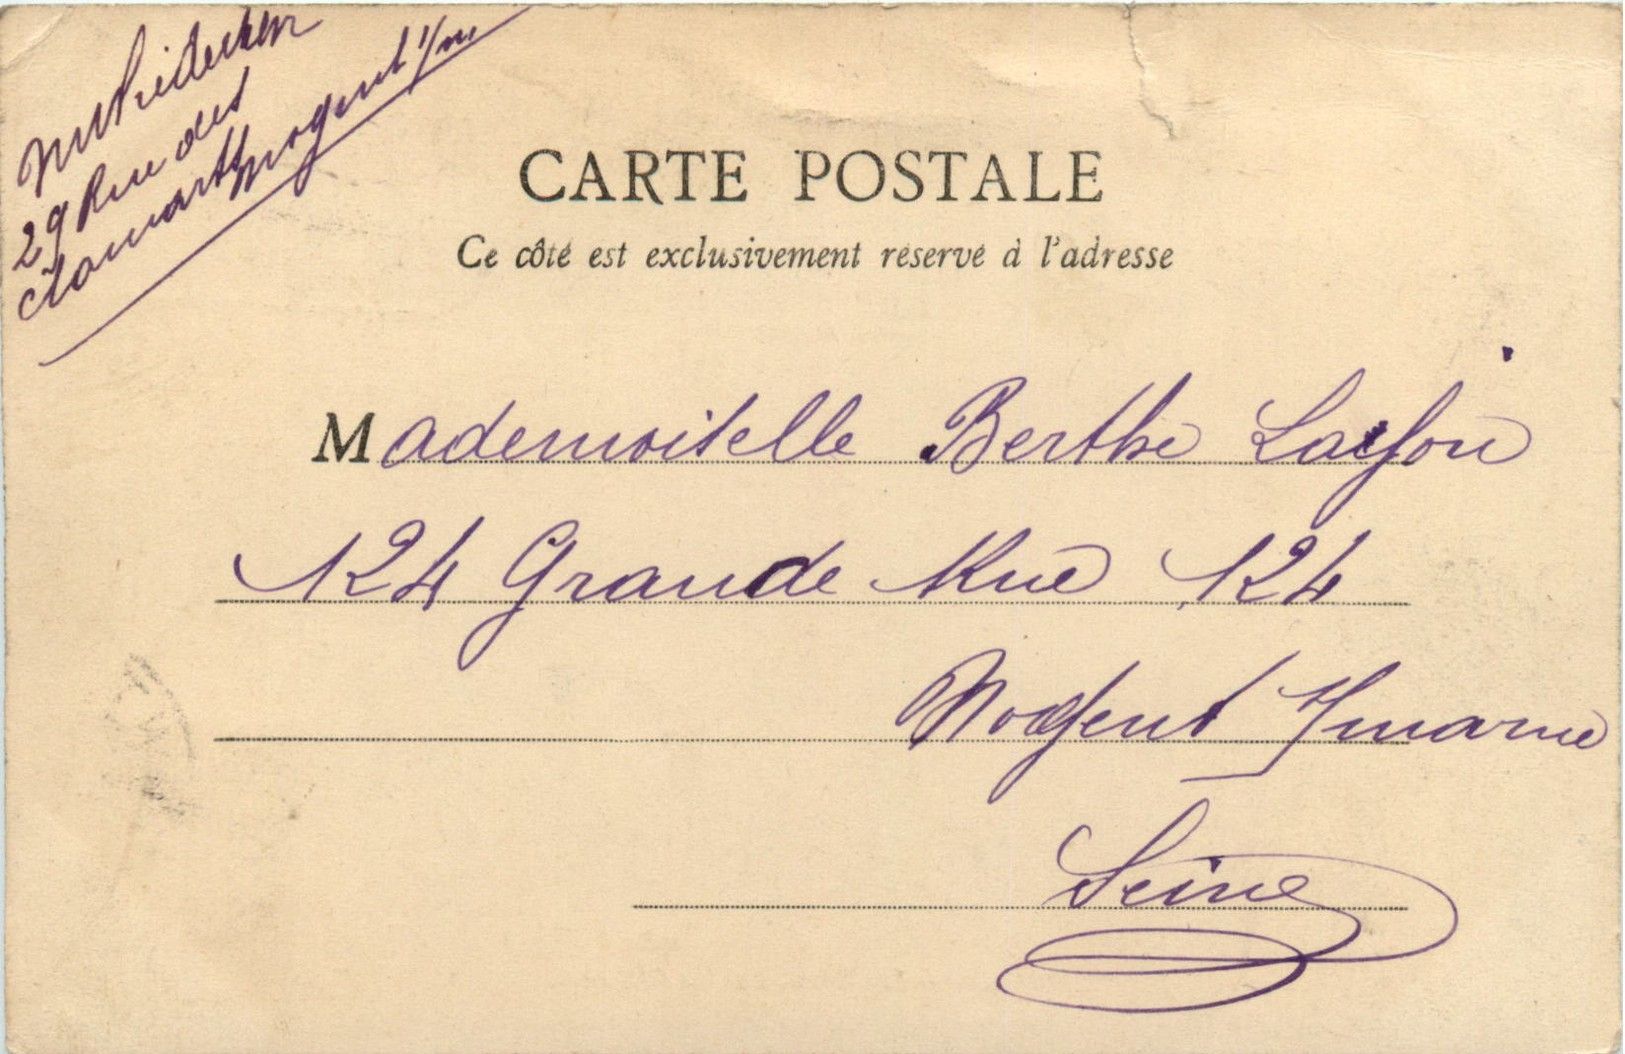 29 Rue des
Nogent s/m.
CARTE POSTALE
Ce côté est exclusivement réservé à l'adresse
Mademoiselle Berthe
124 Grande Rue 124
Nogent s/marne
Seine